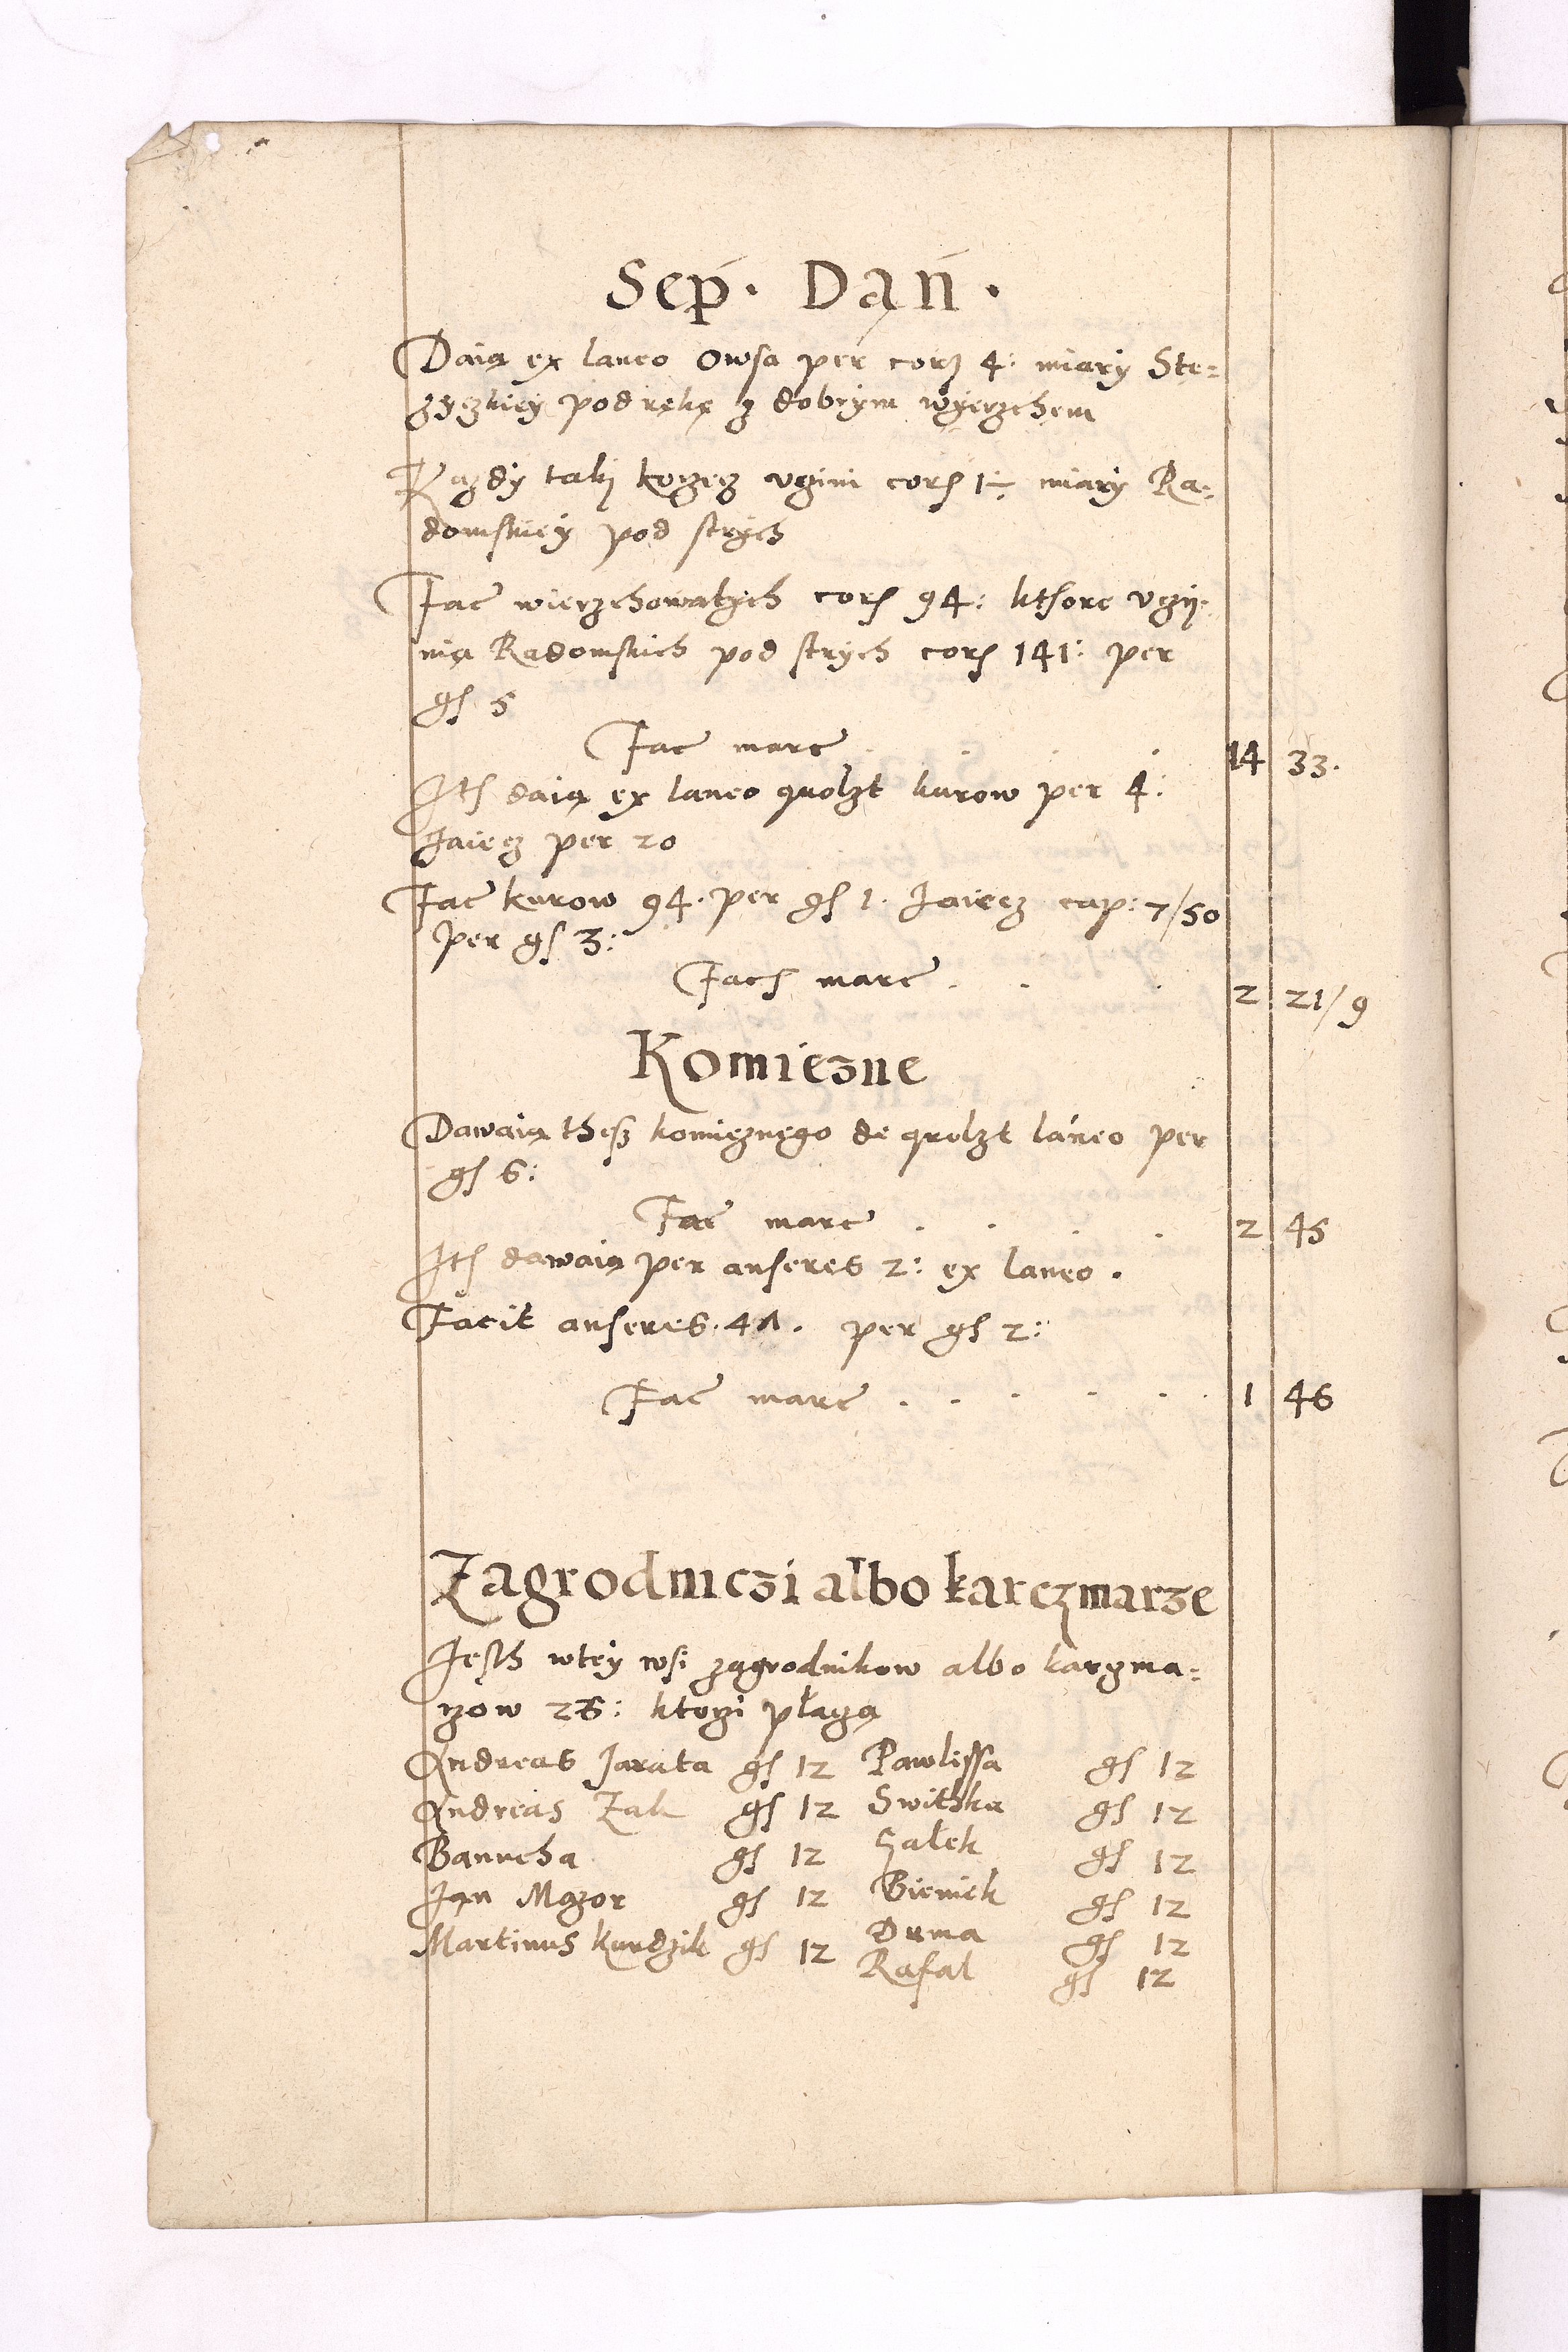 Sep. Dań.
Daią ex laneo owsa per corz 4: miary Ste=
zyczkiey pod rękę z dobrym wyerzchem
Kazdy taki korzecz vczini cors 1÷ miary Ra=
domskiey pod strych
Fac wierzchowatych cors 94: kthore vczy:
nią Radomskich pod strych cors 141: per
gs 5
Fac marc 14 33.
Its daią ex laneo quolzt kurow per 4:
Jaiecz per 20
Fac kurow 94. per gs 1. Jaiecz cap: 7/50
per gs 3:
Facs marc . . . 2 21/9
Komiczne
Dawaią thesz komicznego de qrolzt láneo per
gs 6:
Fac marc . . . . 2 45
Its dawaią per anseres 2: ex laneo.
Facit anseres. 47. per gs 2:
Fac marc . . . . . 1 46
Zagrodniczi albo karczmarze
Jesth wtey wsi zagrodnikow albo karczma=
rzow 26: ktorzi płaczą
Andreas Jarata gs 12 Pawlissa gs 12
Andreas Zak gs 12 Swithka gs 12
Banucha gs 12 Sałek gs 12
Jan Mazor gs 12 Bieniek gs 12
Martinus kurdzik gs 12 Duma gs 12
Rafal gs 12